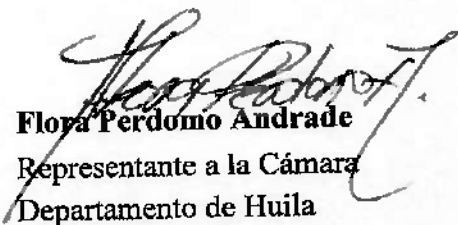 Flora Perdomo Andrade
Representante a la Cámara
Departamento de Huila